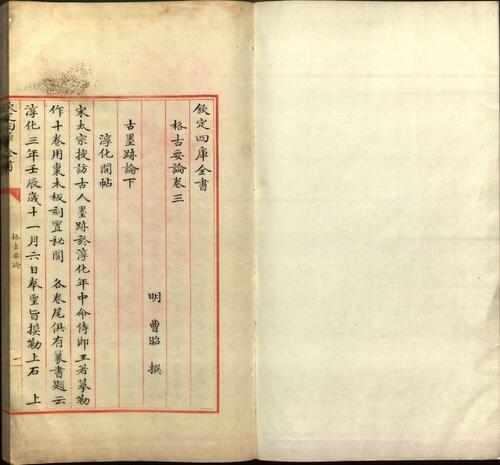 欽定四庫全書
格古要論卷三
明 曹昭 撰
古墨跡論下
淳化閣帖
宋太宗搜訪古人墨跡於淳化年中命侍郎王著摹勒
作十卷用棗木板刻置秘閣 各卷尾俱有篆書題云
淳化三年壬辰歲十一月六日奉聖旨摸勒上石 上
欽定四庫全書
格古要論
一